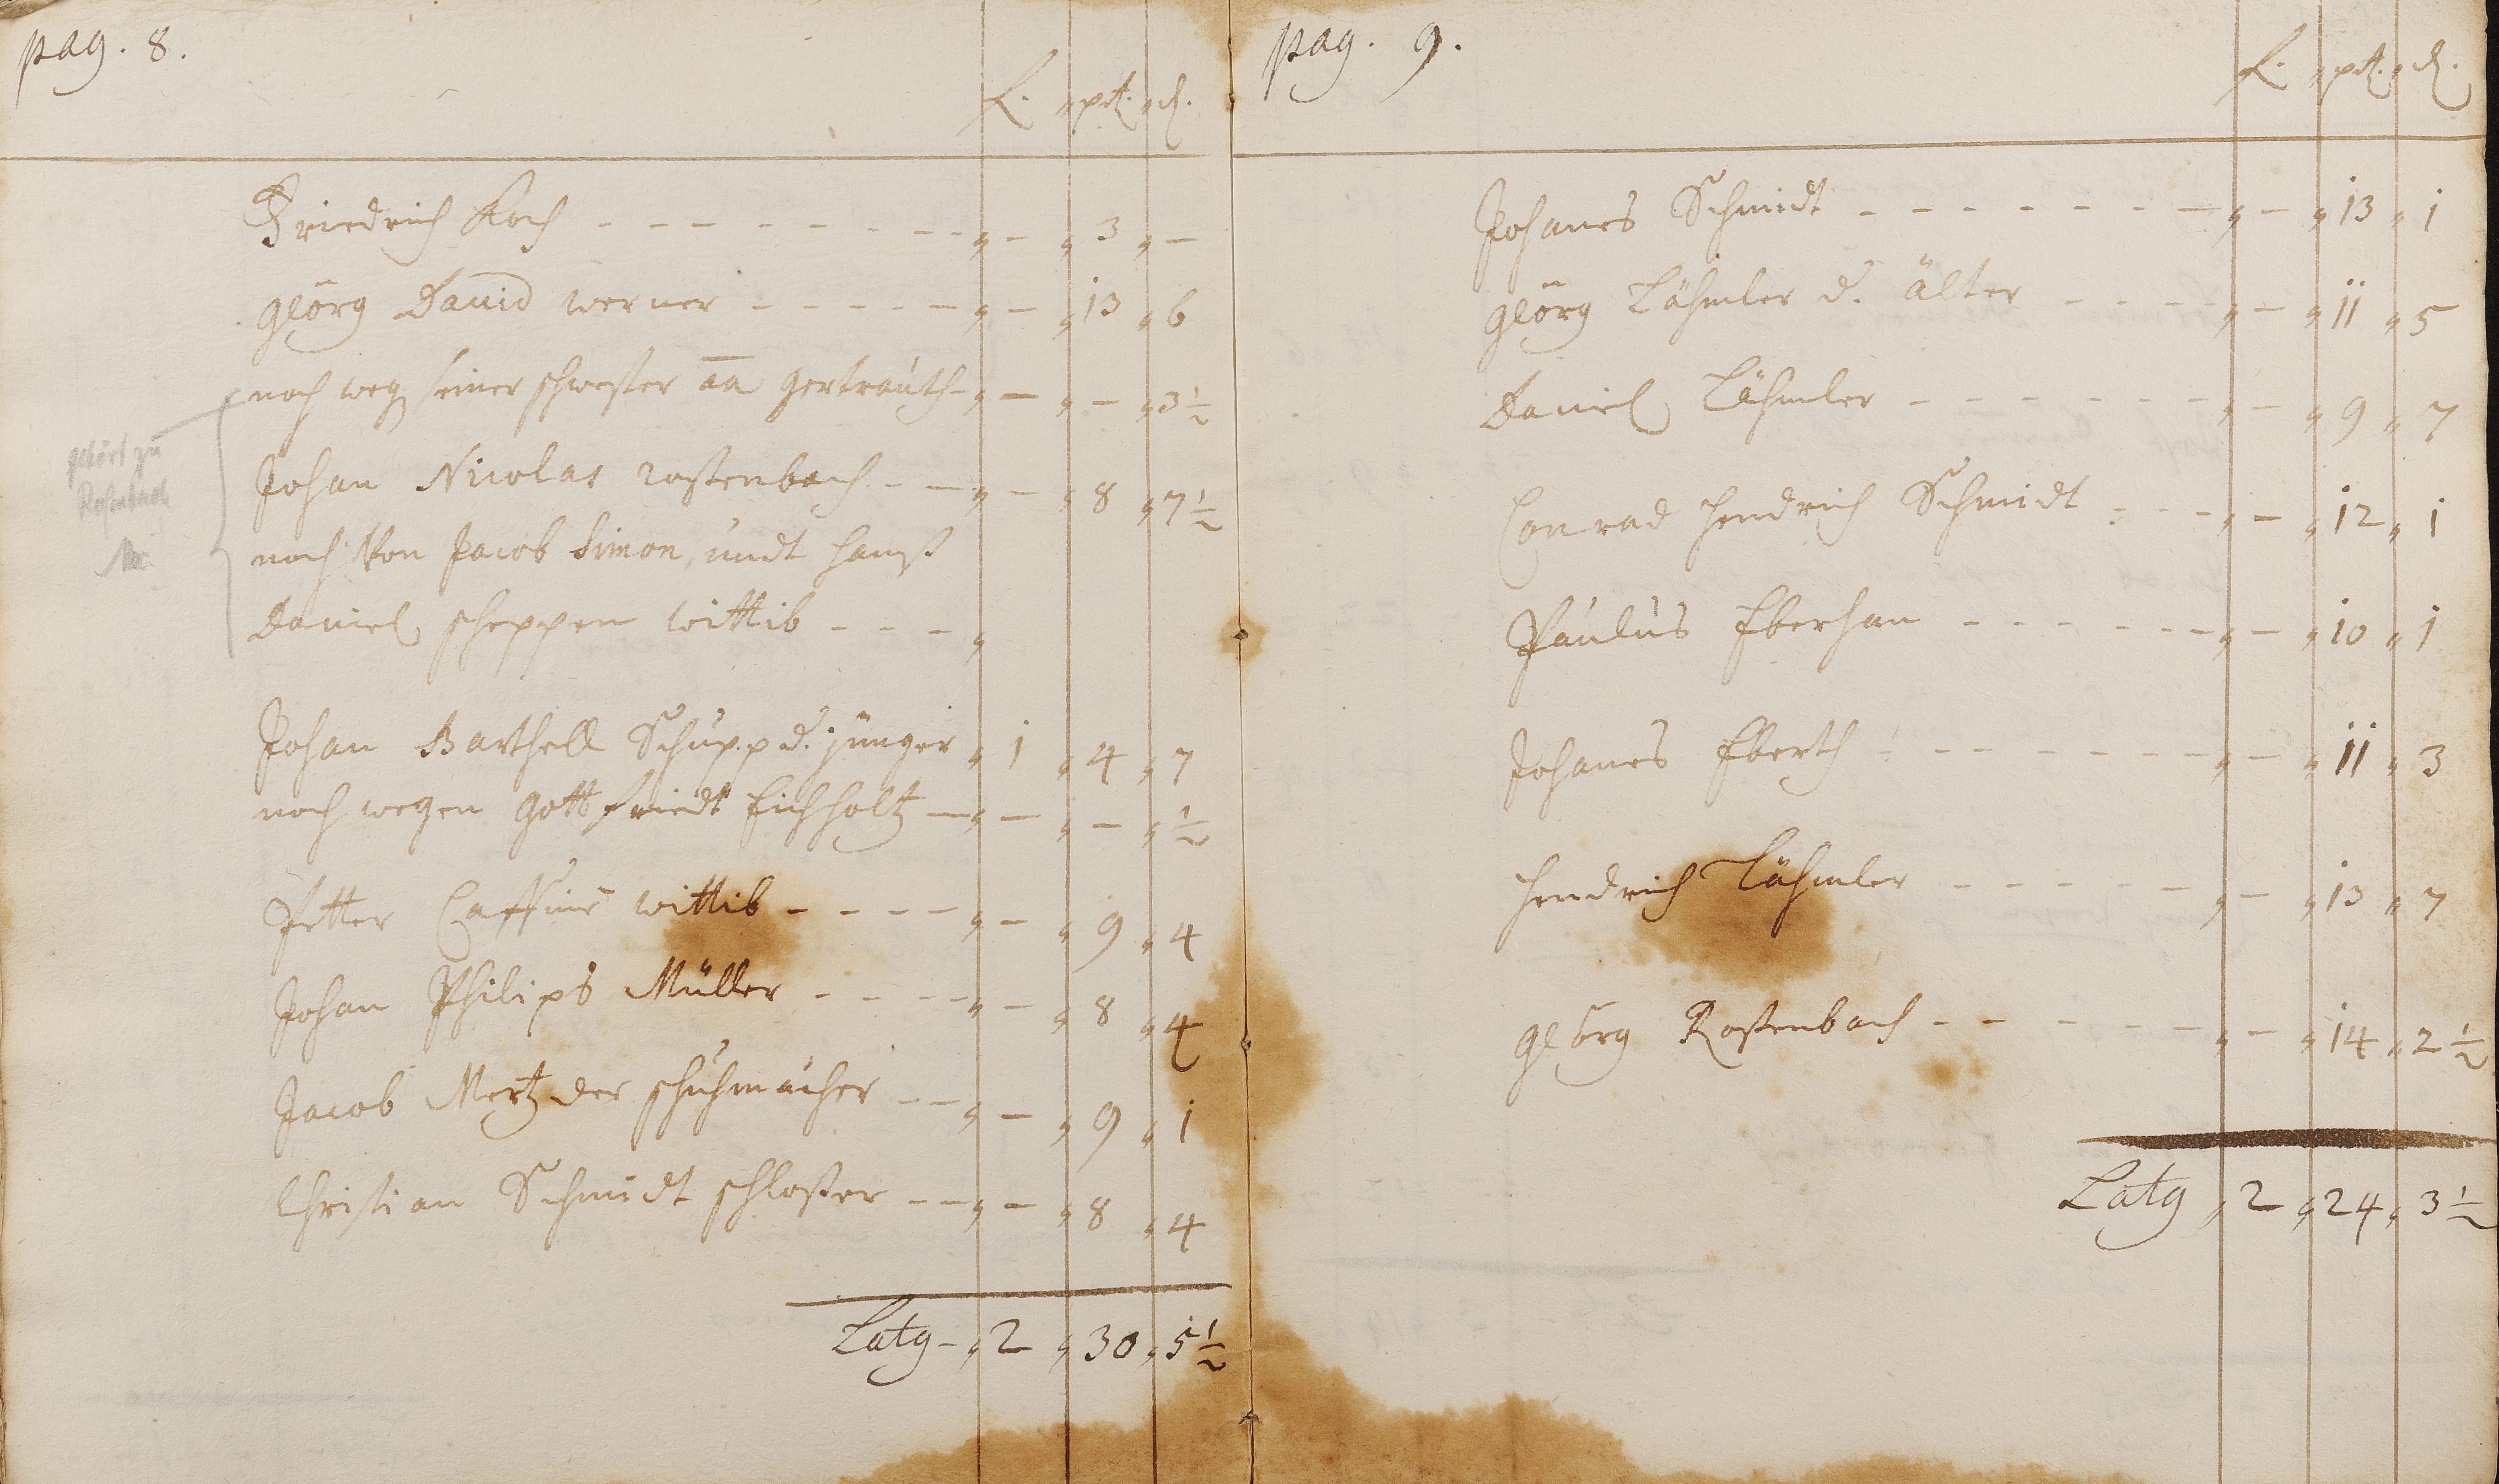 pag. 8.
f. „ ptz. „ d.
Friedrich Koch - - - - - - - - „ - „ 3 „ -
Geörg David Werner - - - - - „ - „ 13 „ 6
noch weg seiner schwester aa gertrauth - „ - „ - „ 3 1/2
gehört zu
Johan Nicolas rostenbach - - „ - „ 8 „ 7 1/2
noch Von Jacob Simon, undt hanß
Daniel scheppen wittib - - - „
Johan Barthell Schupp d. jünger „ 1 „ 4 „ 7
noch wegen Gottfriedt Eichholtz - „ - „ - „ 1/2
Petter Cassius wittib - - - - „ - „ 9 „ 4
Johan Philips Müller - - - - „ - „ 8 „ 4
Jacob Mertz der schuhmacher - - „ - „ 9 „ 1
Christian Schmidt schloßer - - „ - „ 8 „ 4
Latg - „ 2 „ 30 „ 5 1/2
pag. 9.
f. „ ptz. „ d.
Johanes Schmidt - - - - - - - „ - „ 13 „ 1
Geörg Lähmler d. älter - - - - „ - „ 11 „ 5
Daniel Lähmler - - - - - - „ - „ 9 „ 7
Conrad Hendrich Schmidt - - - „ - „ 12 „ 1
Paulus Eberhan - - - - - - „ - „ 10 „ 1
Johanes Eberth - - - - - - „ - „ 11 „ 3
Hendrich Lähmler - - - - - „ - „ 13 „ 7
Geörg Rostenbach - - - - - - „ - „ 14 „ 2 1/2
Latg „ 2 „ 24 „ 3 1/2